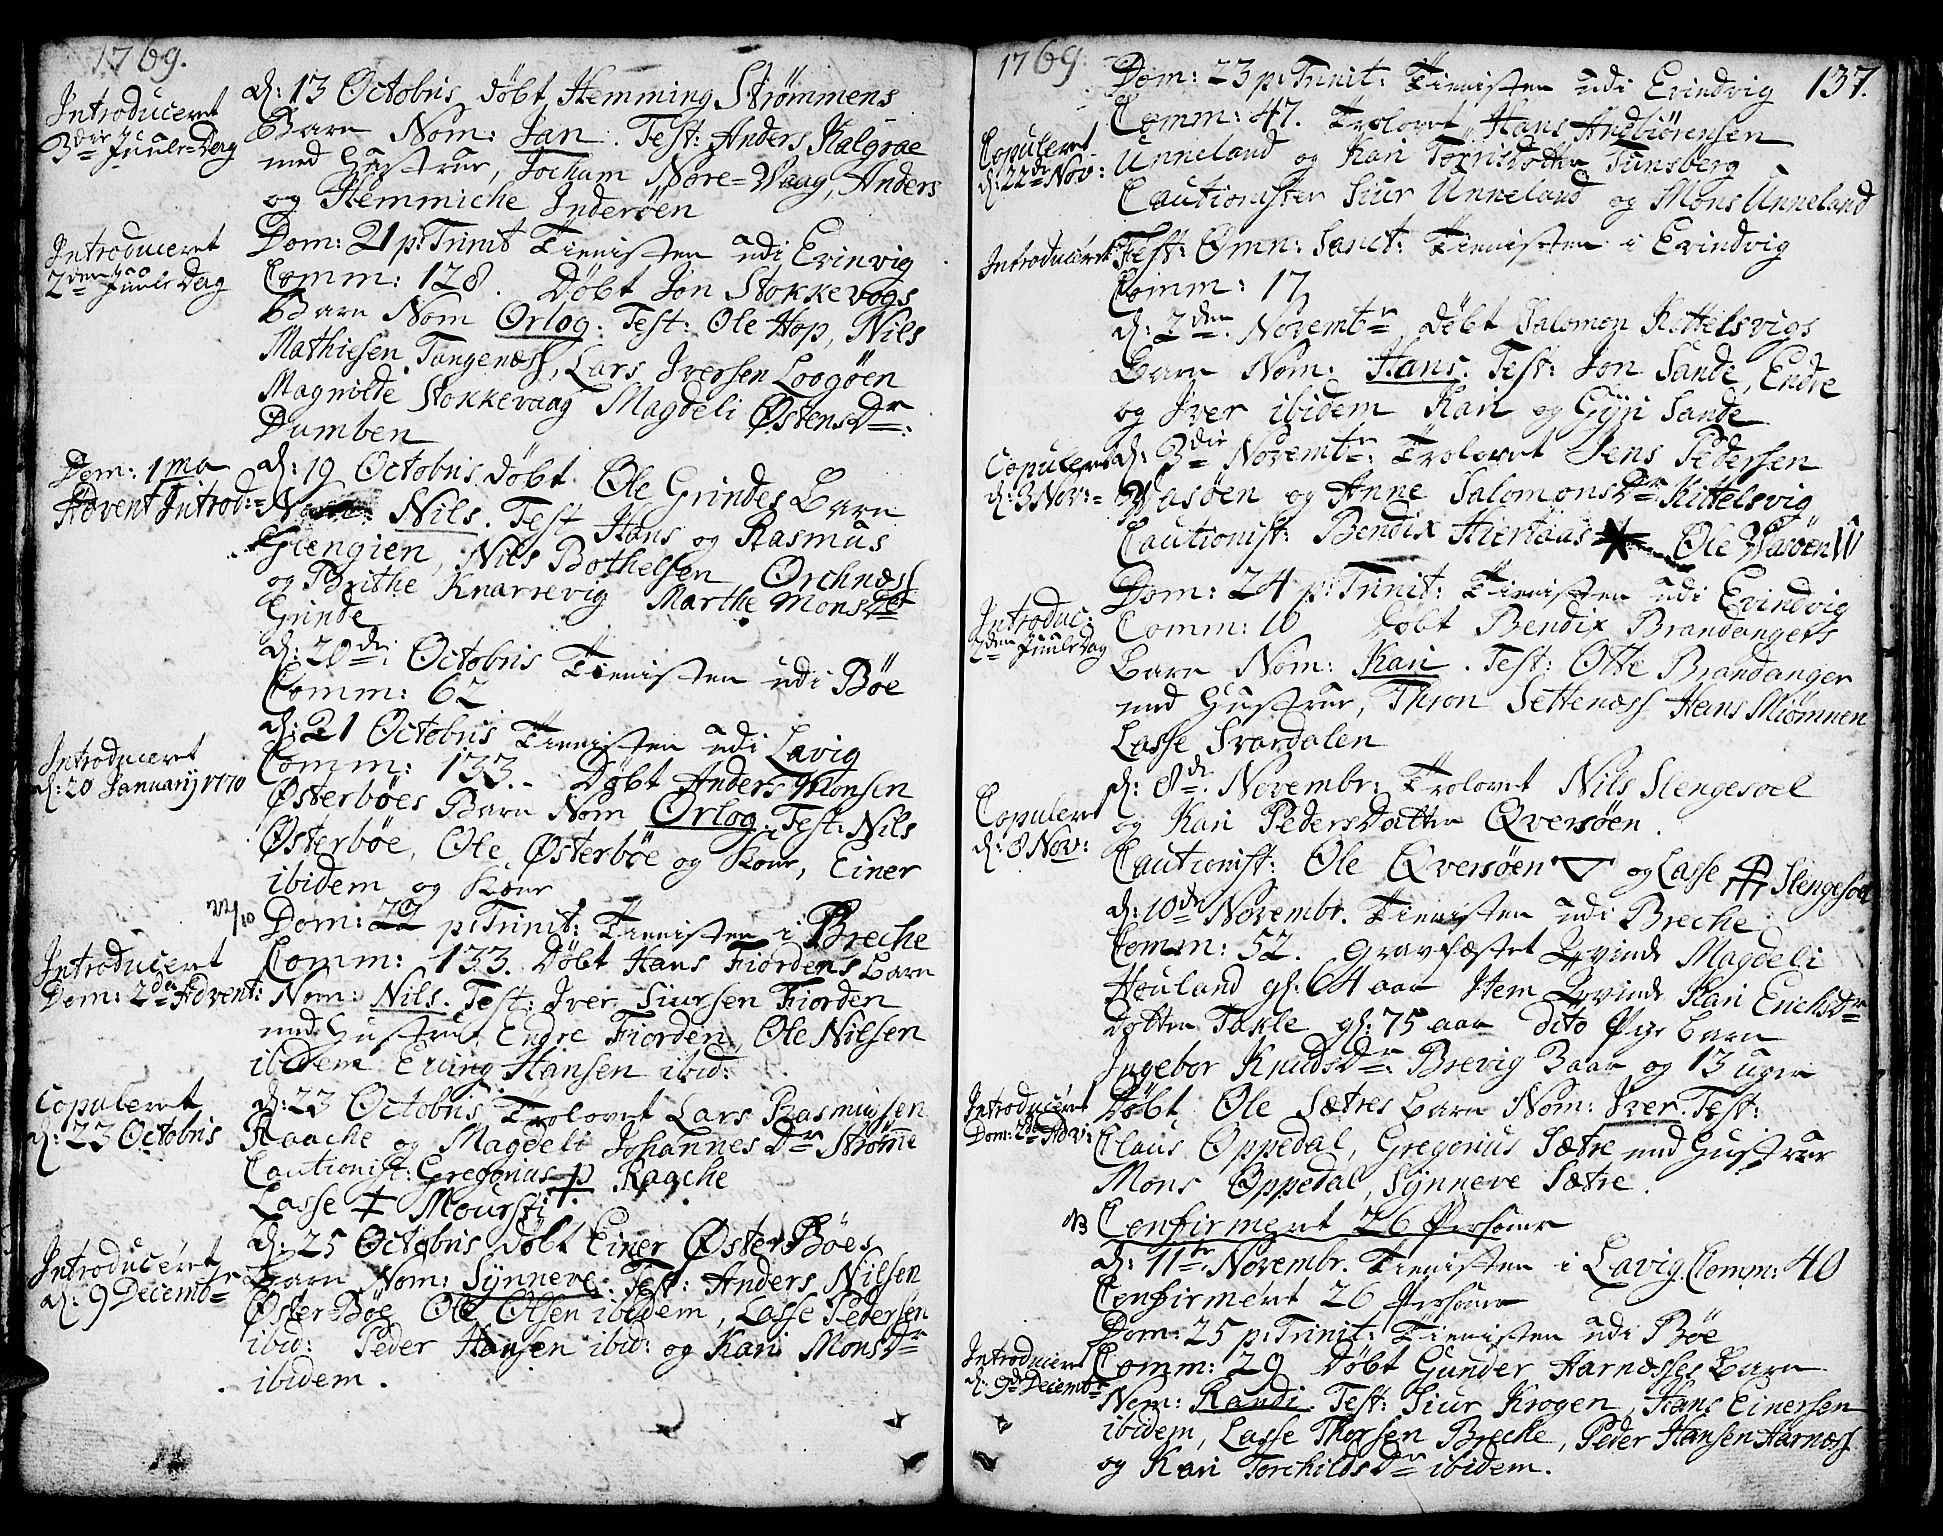 1769.
Introduceret
3die Juule-Dag
d: 13 Octobris døbt Hemming Strømmens
Barn Nom: Jan. Test: Anders Kalgrae
med Hustrue, Jocham Nore-Vaag, Anders
og Hemmiche Inderøen
Introduceret
2den Juule Dag
Dom: 21 p: Trinit Tienisten udi Evinvig
Comm: 128. Døbt Jon Stokkevogs
Barn Nom Orlog. Test: Ole Hop, Nils
Mathiesen Tangenæss, Lars Iversen Loogøen
Magnilde Stokkevaag Magdeli ØstensDr:
Dumben
Dom: 1ma
Advent Introd:
d: 19 Octobris døbt Ole Grindes Barn
Nom: Nils. Test Hans og Rasmus
Glengien, Nils Bothelsen Orchnæss
og Brithe Knarrevig Marthe MonsDr
Grinde
d: 20de Octobris Tienisten udi Bøe
Comm: 62
Introduceret
d: 20 Januarij 1770
d: 21 Octobris Tienisten udi Lavig
Comm: 133. Døbt Anders Monsen
Østerbøes Barn Nom Orlog. Test: Nils
Østerbøe, Ole Østerbøe og Kone, Einer
ibidem og Kone
22/10
Dom: 22 p: Trinit: Tienisten i Breche
Introduceret
Dom: 2da Advent:
Comm: 133. Døbt Hans Fiordens Barn
Nom: Nils. Test: Iver Siursen Fiorden
med Hustrue, Endre Fiorden, Ole Nilsen
ibidem Erling Hansen ibid:
Copuleret
d: 23 Octobris
d: 23 Octobris Trolovet Lars Rasmusen
Raache og Magdeli JohannesDr Strømme
Cautionist: Gregorius Raache
Lasse Moursti
Introduceret
d: 9 Decembr
d: 25 Octobris døbt Einer ØsterBøes
Barn Nom: Synneve. Test: Anders Nilsen
ØsterBøe Ole Olsen ibidem, Lasse Pedersen
ibid: Peder Hansen ibid: og Kari MonsDr
ibidem.
1769.
137.
Dom: 23 p: Trinit: Tienisten udi Evindvig
Comm: 47. Trolovet Hans Andbiørensen
Copuleret
d: 22de Nov:
Unneland og Kari Torrisdotter Tunsberg
Cautionister Siur Unneland og Mons Unneland
Introduceret
Fest: Omn: Sanct: Tienisten i Evindvig
Comm: 17
d: 2den Novembr døbt Salomon Kittelsvigs
Barn Nom: Hans. Test: Jon Sande, Endre
og Iver ibidem Kari og Gyri Sande
Copuleret
d: 3 Nov:
d: 3die Novembr: Trolovet Jens Pedersen
Wasøen og Anne SalomonsDr Kittelsvig
Cautionist: Bendix Hiertaas Ole Waaöen
Dom: 24 p: Trinit: Tienisten udi Evindvig
Introduc:
2den Juule Dag
Comm: 10 Døbt Bendix Brandangers
Barn Nom: Kari. Test: Otte Brandanger
med Hustrue, Thron Settenæss Hans Miømnen
Lasse Svardalen
Copuleret
d: 8 Nov:
d: 8de Novembr: Trolovet Nils Slengesoel
og Kari PedersDatter Qversøen.
Cautionist: Ole Qversøen og Lasse Slengesoel
d: 10de Novembr. Tienisten udi Breche
Comm: 52. Gravfæstet Qvinde Magdeli
Houland gl: 64 aar Item Qvinde Kari ErichsDr
dotter Takle gl: 75 aar dito Pige Barn
Ingebor KnudsDr: Brevig 3 aar og 13 uger
Introduceret
Dom: 2da Adv:
Døbt Ole Sætres Barn Nom: Iver. Test:
Claus Oppedal, Gregorius Sætre med Hustrue
Mons Oppedal, Synneve Sætre.
NB Confirmeret 26 Personer
d: 11te Novembr. Tienisten i Lavig Comm: 40
Confirmert 26 Personer
Dom: 25 p: Trinit: Tienisten udi Bøe
Introduceret
d: 9de Decembr
Comm: 29 Døbt Gunder Harnæsses Barn
Nom: Randi Test: Siur Krogen, Hans Einersen
ibidem, Lasse Thorsen Breche, Peder Hansen Harnæss
og Kari TorchildsDr ibidem.